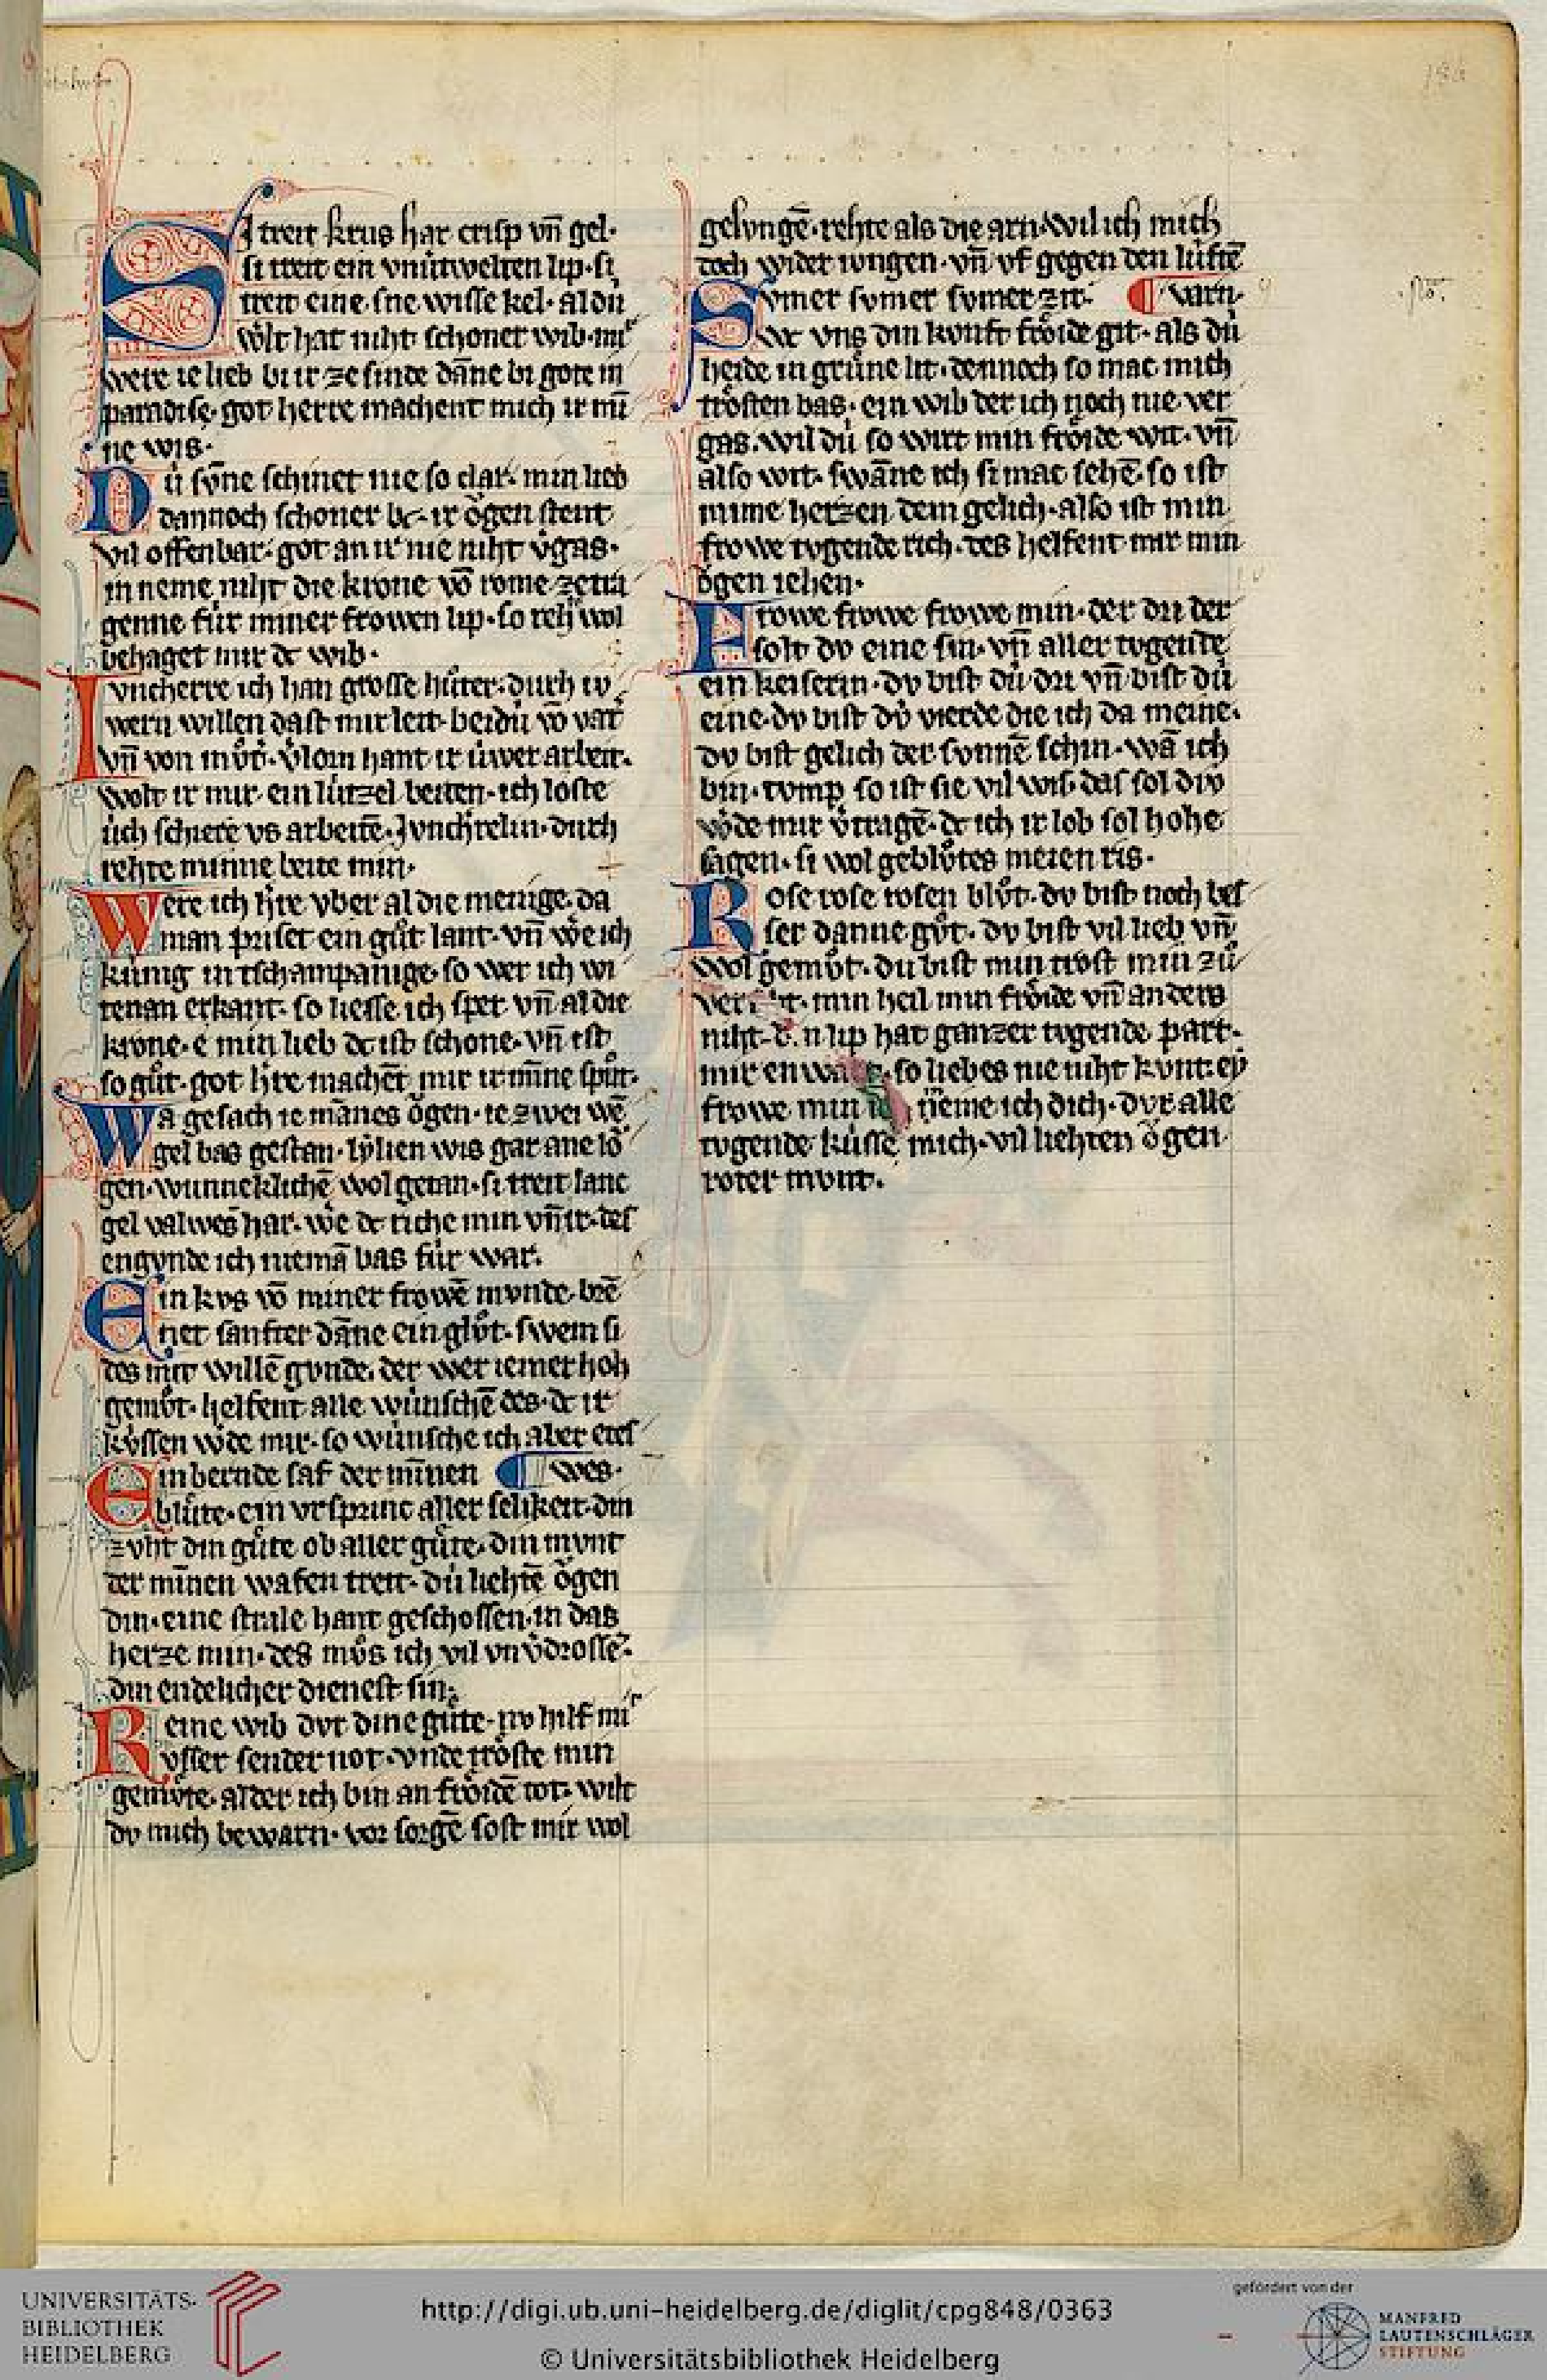 Si treit krus har crisp vn̄ gel·
si treit ein vnuͥtwelten lip· si
treit eine sne wisse kel· al duͥ
wͤlt hat niht schoner wib· mir
were ie lieb bi ir ze sinde dāne bi gote in
paradise· got herre machent mich ir mī
ne wis·
Duͥ svͦne schinet nie so clar· min lieb
dannoch schoner dc· ir oͮgen stent
vil offenbar· got an ir nie niht v̾gas·
in neme niht die krone vō rome ze tra
genne fuͥr miner frowen lip· so reh wol
behaget mir dc wib·
Ivncherre ich han grosse huͦter· durh iv
wern willen dast mir leit· beidu vō vat̾
vn̄ von muͦt̾· v̾lorn hant ir uͥwer arbeit·
wolt ir mir ein luͥtzel beiten· ich loste
uͥch schiere vs arbeitē· Jvnch̾relin· durh
rehte minne beite min·
Were ich h̾re vber al die menige· da
man priset ein guͦt lant· vn̄ we̾ ich
kuͥnig in tschampanige· so wer ich wi
tenan erkant· so liesse ich sper vn̄ al die
krone· e min lieb dc ist schone· vn̄ ist
so guͦt· got h̾re machet mir ir mīne spuͦt·
Wa gesach ie mānes oͮgen· ie zwei wē
gel bas gestan· lylien wis gar ane loͮ
gen· wunneklichē wol getan· si treit lanc
gel valwes har· we̾ dc riche min vn̄ ir· des
engvnde ich niemā bas fuͥr war·
Ein kvs vō miner frowē mvnde· brē
net sanfter dāne ein gluͦt· swem si
des mit willē gvnde· der wer iemer hoh
gemuͦt· helfent alle wuͥnschē des· dc ir
kvssen w̾de mir· so wuͥnsche ich aber etes
Ein bernde saf der minen ¶ wes·
bluͤte· ein vrsprinc aller selikeit· din
zvht din guͤte ob aller guͤte· din mvnt
der minen wafen treit· duͥ liehtē oͮgen
din· eine strale hant geschossen· in das
herze min· des muͦs ich vil vnv̾drossē·
din endelicher dienest sin·
Reine wib dvr dine guͤte· nv hilf mir
vsser sender not· vnde troͤste min
gemuͤte· alder ich bin an froͤidē tot· wilt
dv mich bewarn· vor sorgē sost mir wol
gelvngē· rehte als die arn· wil ich mich
doch wider ivngen· vn̄ vf gegen den luͥftē
Svmer svmer svmer zit· ¶ varn·
dc vns din kvnft froͤide git· als duͥ
heide in gruͤne lit· dennoch so mac mich
troͤsten bas· ein wib der ich noch nie ver
gas· wil duͥ so wirt min froͤide wit· vn̄
also wit· swāne ich si mac sehē· so ist
mime herzen dem gelich· also ist min
frowe tvgende rich· des helfent mir min
oͮgen iehen·
Frowe frowe frowe min· der dri der
solt dv eine sin· vn̄ aller tvgende
ein keiserin· dv bist duͥ dri vn̄ bist duͥ
eine· dv bist duͥ vierde die ich da meine·
dv bist gelich der svnnē schin· wā ich
bin· tvmp so ist sie vil wis· das sol div
w̾de mir v̾tragē· dc ich ir lob sol hohe
sagen· si wol gebluͤtes meien ris·
Rose rose rosen bluͦt· dv bist noch bes
ser danne guͦt· dv bist vil lieb vn̄
wol gemuͦt· du bist min trost min zuͦ
min heil min froͤide vn̄ anders
niht· lip hat ganzer tvgende part·
mir en so liebes nie niht kvnt· ey
frowe min neme ich dich· dvr alle
tvgende kuͥsse mich· vil liehten oͮgen
roter mvnt·
UNIVERSITÄTS-
BIBLIOTHEK
HEIDELBERG
http://digi.ub.uni-heidelberg.de/diglit/cpg848/0363
© Universitätsbibliothek Heidelberg
gefördert von der
MANFRED
LAUTENSCHLÄGER
STIFTUNG